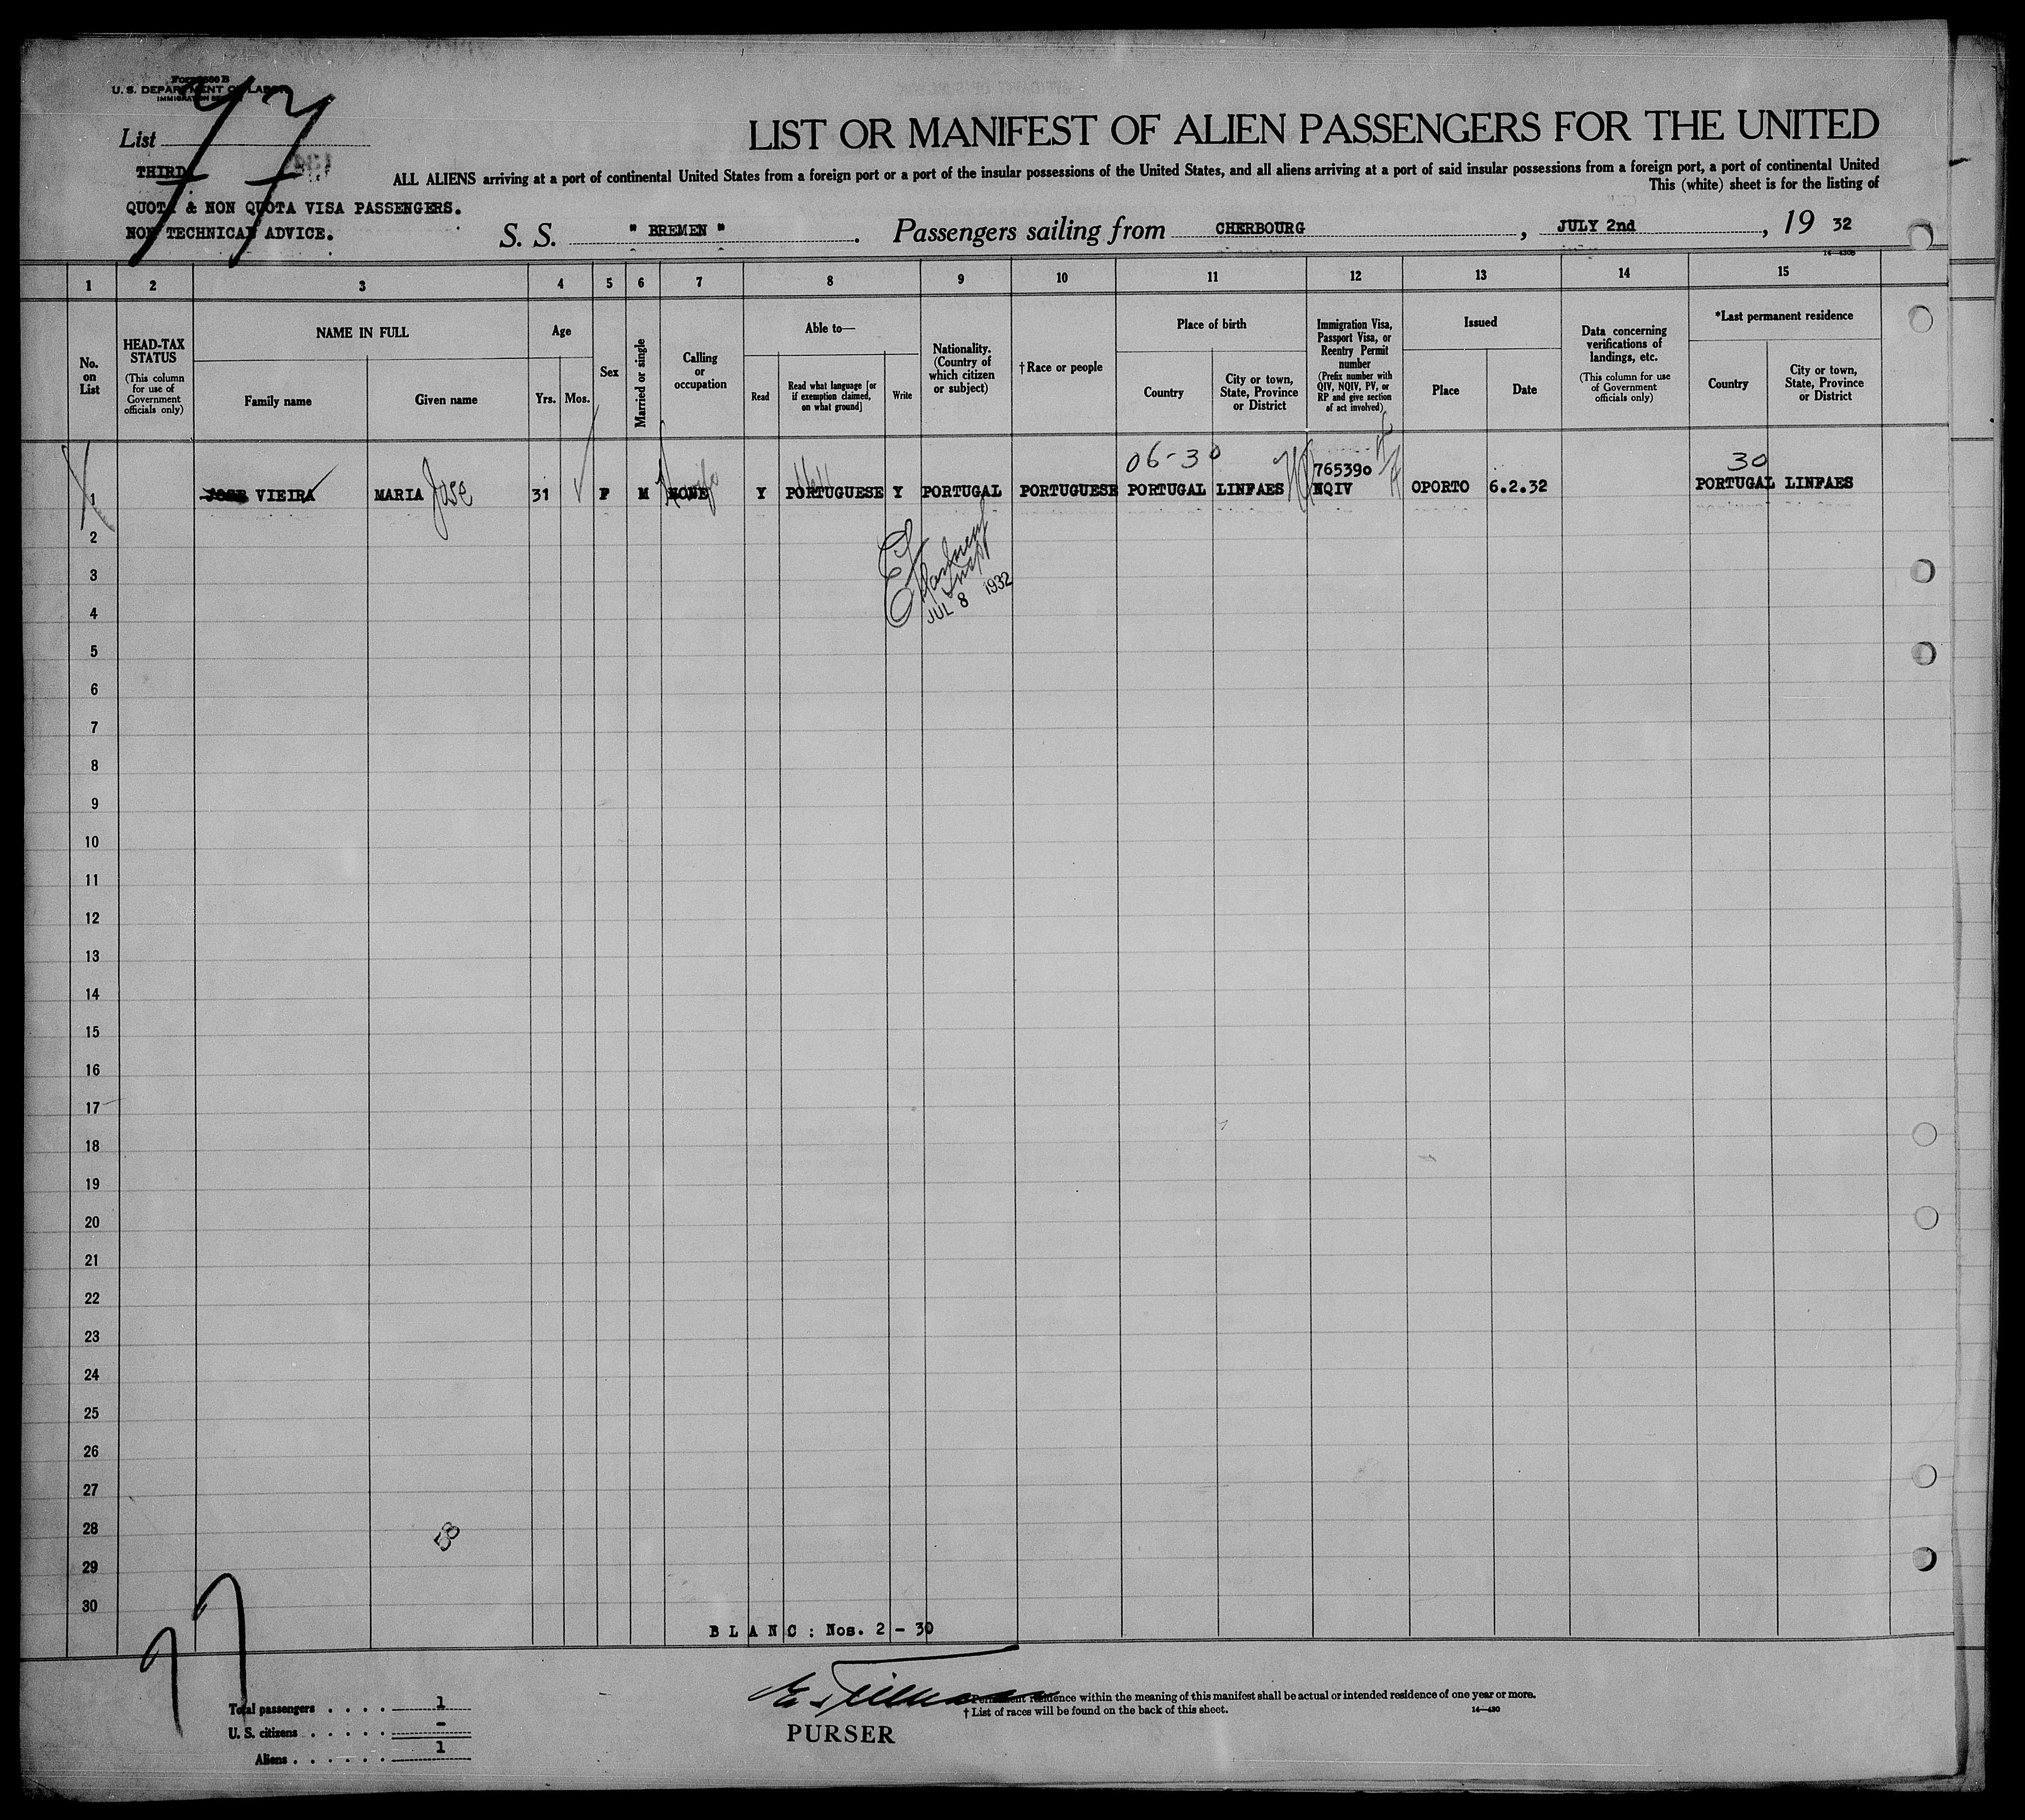 Form 500 B
U. S. DEPARTMENT OF LABOR
IMMIGRATION SERVICE
List 77
LIST OR MANIFEST OF ALIEN PASSENGERS FOR THE UNITED
THIRD
ALL ALIENS arriving at a port of continental United States from a foreign port or a port of the insular possessions of the United States, and all aliens arriving at a port of said insular possessions from a foreign port, a port of continental United
This (white) sheet is for the listing of
QUOTA & NON QUOTA VISA PASSENGERS.
NON TECHNICAL ADVICE.
S. S. " BREMEN " . Passengers sailing from CHERBOURG , JULY 2nd , 19 32
14—430B
1 2 3 4 5 6 7 8 9 10 11 12 13 14 15
No. on List
HEAD-TAX STATUS
(This column for use of Government officials only)
NAME IN FULL
Family name
Given name
Age
Yrs.
Mos.
Sex
Married or single
Calling or occupation
Able to—
Read
Read what language [or if exemption claimed, on what ground]
Write
Nationality. (Country of which citizen or subject)
†Race or people
Place of birth
Country
City or town, State, Province or District
Immigration Visa, Passport Visa, or Reentry Permit number
(Prefix number with QIV, NQIV, PV, or RP and give section of act involved)
Issued
Place
Date
Data concerning verifications of landings, etc.
(This column for use of Government officials only)
*Last permanent residence
Country
City or town, State, Province or District
06-30 30
765390
1 JOSE VIEIRA MARIA Jose 31 F M NONE Y PORTUGUESE Y PORTUGAL PORTUGUESE PORTUGAL LINFAES NQIV OPORTO 6.2.32 PORTUGAL LINFAES
2
3
JUL 8 1932
4
5
6
7
8
9
10
11
12
13
14
15
16
17
18
19
20
21
22
23
24
25
26
27
28
29
30
B L A N C : Nos. 2 - 30
Total passengers . . . . 1
U. S. citizens . . . . . -
Aliens . . . . . . 1
PURSER
* Permanent residence within the meaning of this manifest shall be actual or intended residence of one year or more.
† List of races will be found on the back of this sheet.
14—430